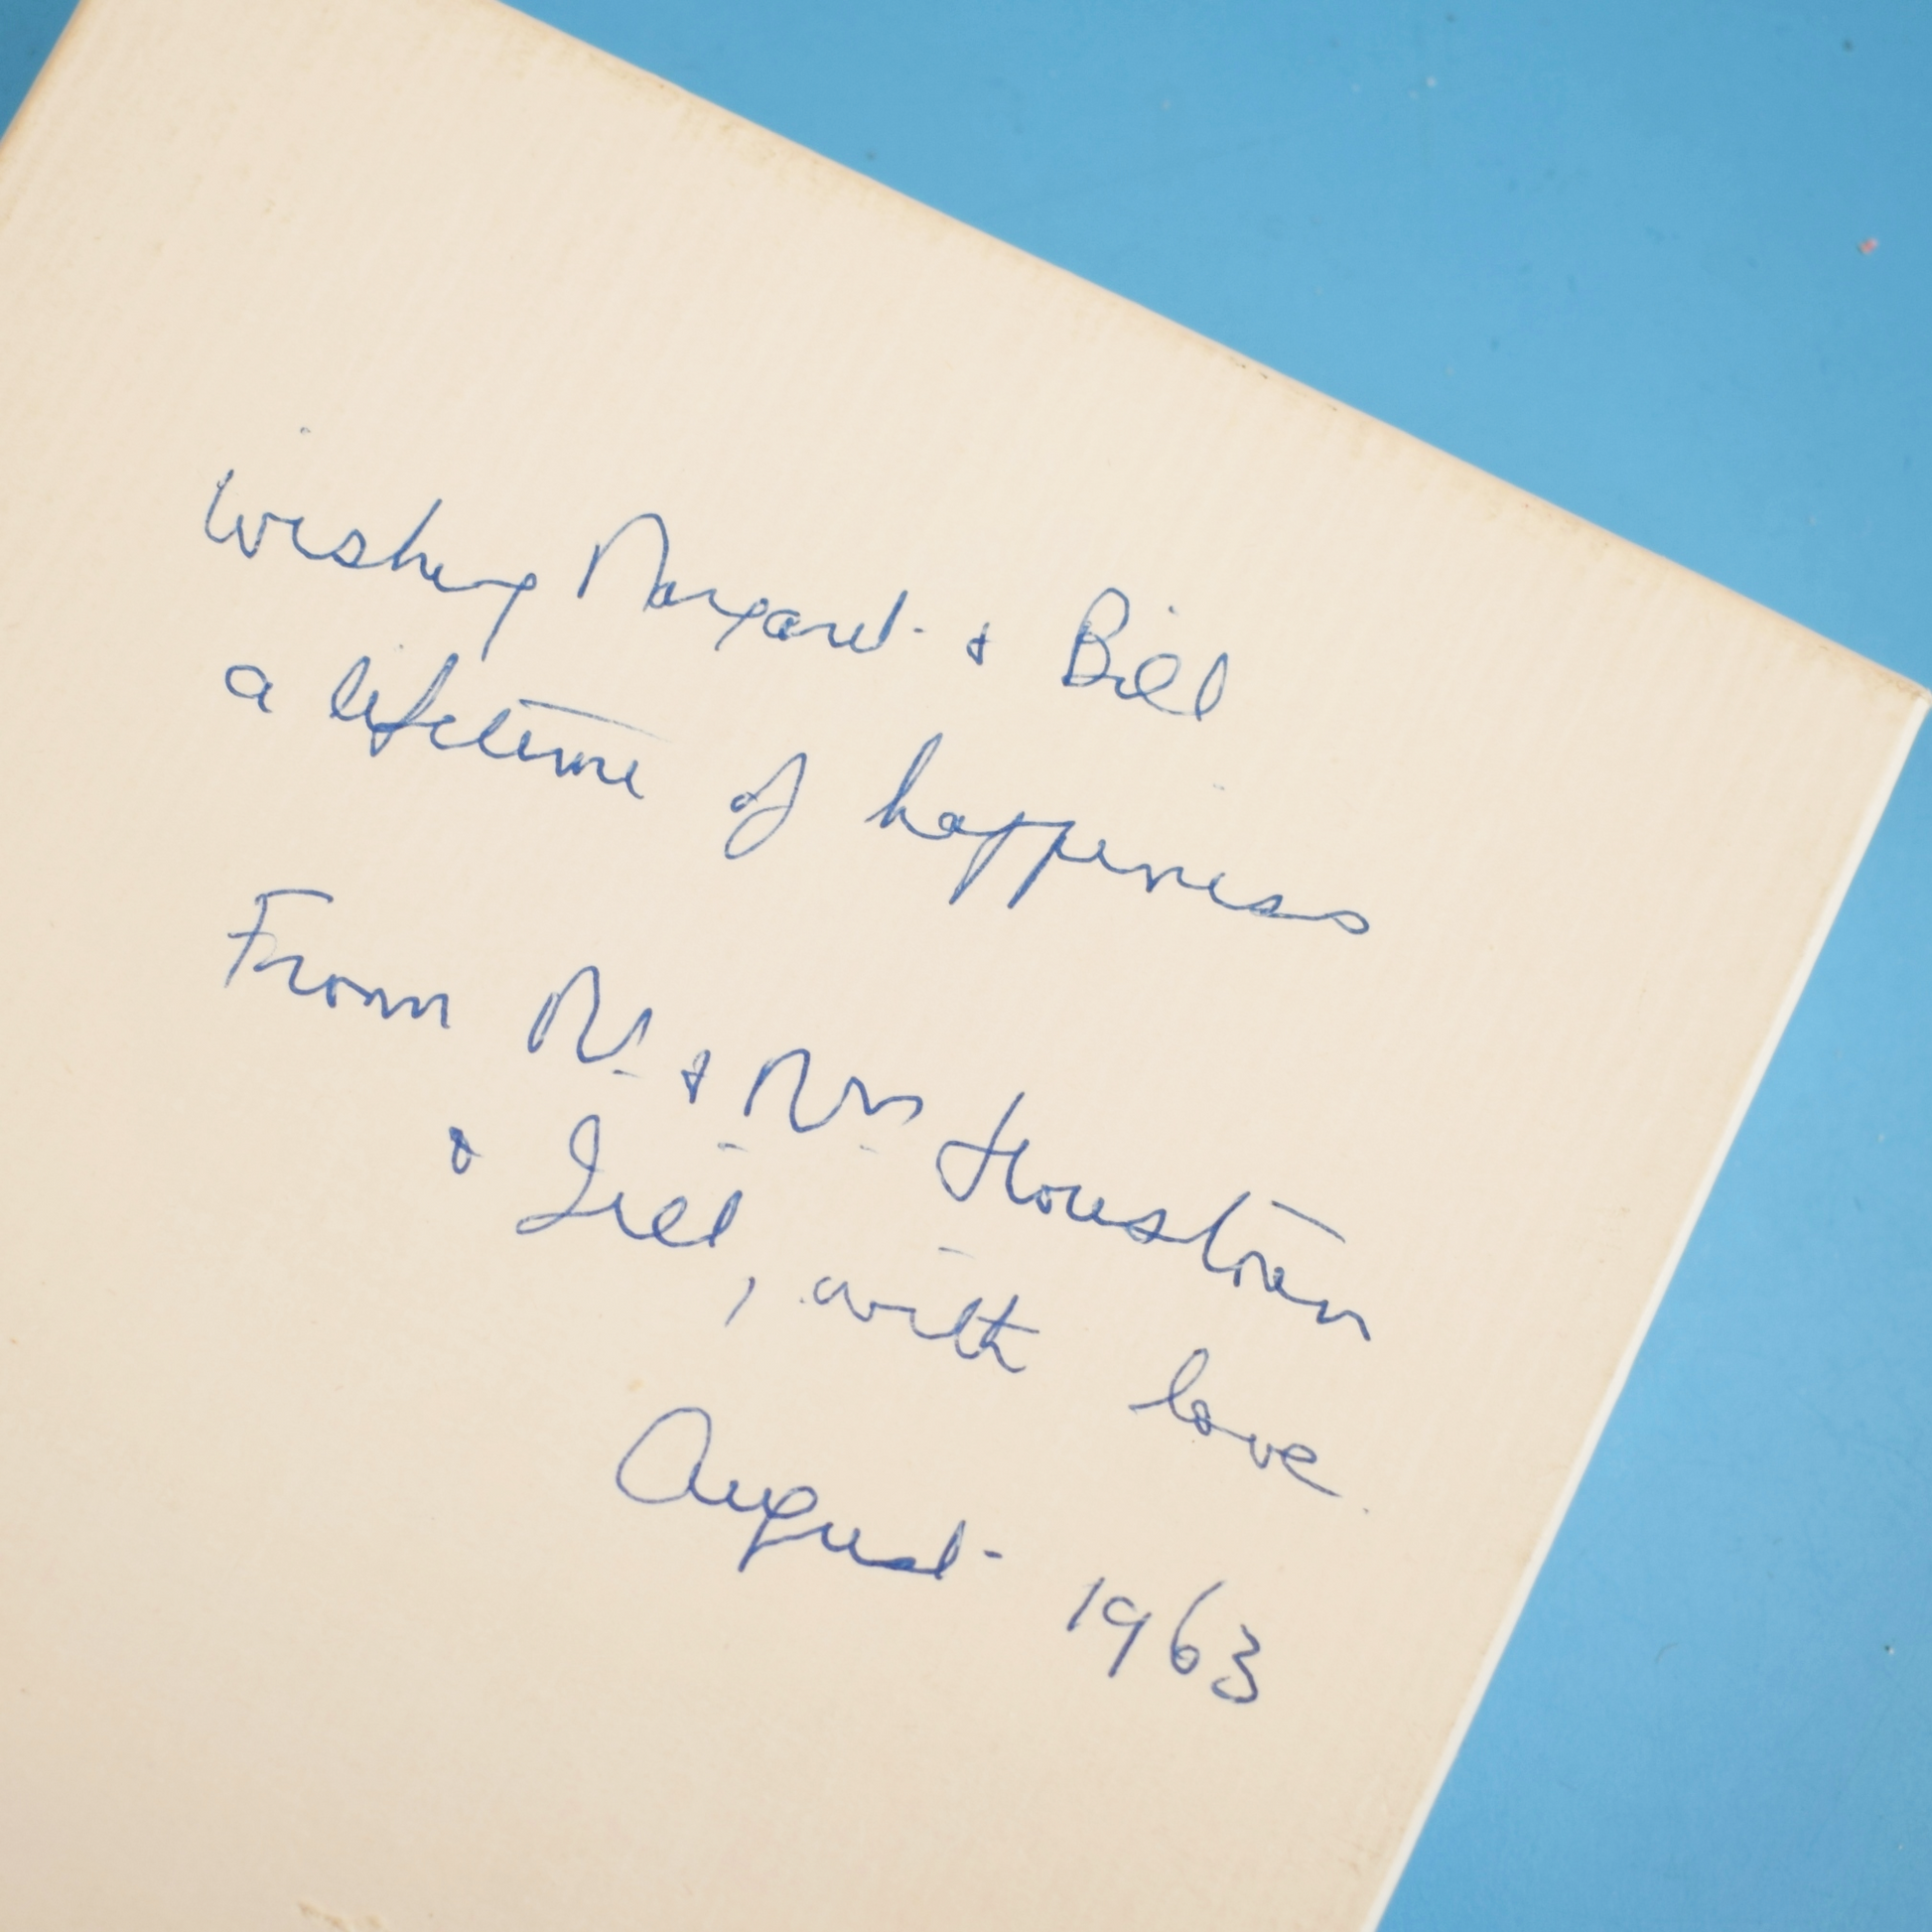 Wishing Margaret & Bill
a lifetime of happiness
From Mr & Mrs Houston
& Jill, with love.
August 1963